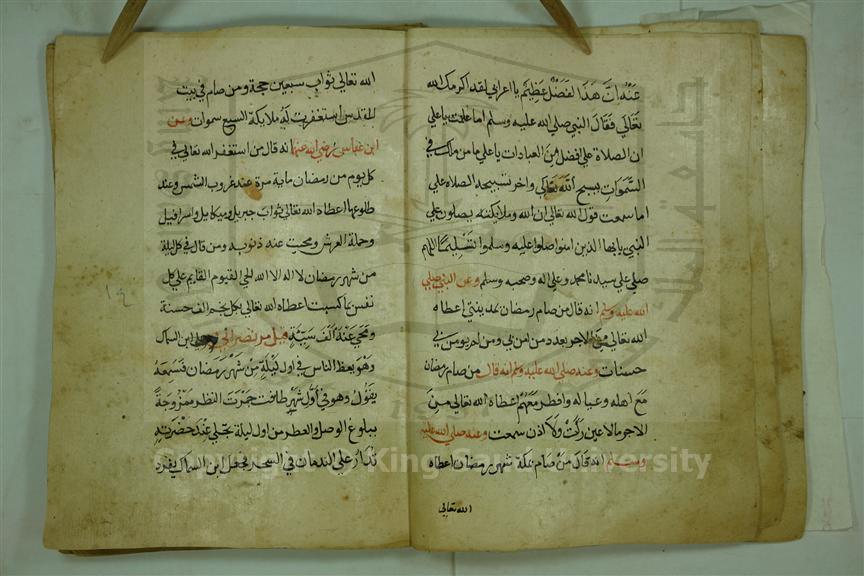 عنه ان هذا لفضل عظيم يا اعرابي لقد اكرمك الله
تعالى فقال النبي صلى الله عليه وسلم اما علمت يا علي
ان الصلاة علي افضل من العبادات يا علي ما من ملك في
السموات يسبح الله تعالى واخر تسبيحه الصلاة علي
اما سمعت قول الله تعالى ان الله وملائكته يصلون على
النبي يا ايها الذين امنوا صلوا عليه وسلموا تسليما اللهم
صلي على سيدنا محمد وعلى اله وصحبه وسلم وعن النبي صلى
الله عليه وسلم انه قال من صام رمضان بمدينتي اعطاه
الله تعالى من الاجر بعدد من امن بي ومن لم يومن بي
حسنات وعنه صلى الله عليه وسلم انه قال من صام رمضان
مع اهله وعياله وافطر معهم اعطاه الله تعالى من
الاجر مالا عين رات ولا اذن سمعت وعنه صلى الله عليه
وسلم انه قال من صام بمكة شهر رمضان اعطاه
الله تعالى
الله تعالى ثواب سبعين حجة ومن صام في بيت
المقدس استغفرت له ملايكة السبع سموات وعن
ابن عباس رضي الله عنهما انه قال من استغفر الله تعالى في
كل يوم من رمضان ماية مرة عند غروب الشمس وعند
طلوعها اعطاه الله تعالى ثواب جبريل وميكاييل واسرافيل
وحملة العرش ومحيت عنه ذنوبه ومن قال في كل ليلة
من شهر رمضان لا اله الا الله الحي القيوم القايم على كل
نفس بما كسبت اعطاه الله تعالى بكل نجم الف حسنة
ومحي عنه الف سيئة قيل مر نصر ابن السماك
وهو يعظ الناس في اول ليلة من شهر رمضان فسمعه
يقول وهو في اول شهر طافت خمرت النظر ممزوجة
ببلوغ الوصل والعطر من اول ليلة تجلي عند حضرته
تدار على الندمان في السحر فجعل ابن السماك يفرد
Copyright © King Saud University
جامعة الملك